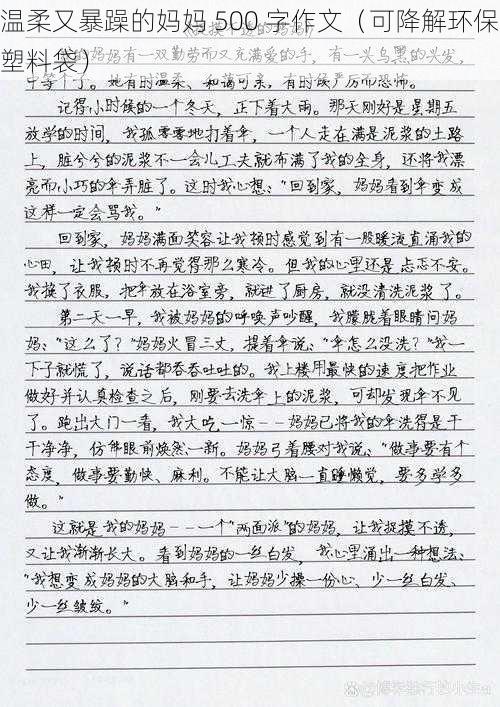 温柔又暴躁的妈妈,500 字作文（可降解环保
塑料袋）
《捉摸不透的妈妈》
我的妈妈有一双勤劳而又充满爱的手，有一头乌黑的头发，
中等个子。她有时温柔、和蔼可亲，有时候严厉而恐怖。
记得小时候的一个冬天，正下着大雨。那天刚好是星期五
放学的时间，我孤零零地打着伞，一个人走在满是泥浆的土路
上，脏兮兮的泥浆不一会儿工夫就布满了我的全身，还将我漂
亮而小巧的伞弄脏了。这时我心想："回到家，妈妈看到伞变成
这样一定会骂我。"
回到家，妈妈满面笑容让我顿时感觉到有一股暖流直涌我的
心田，让我顿时不再觉得那么寒冷。但我的心里还是忐忑不安。
我换了衣服，把伞放在浴室旁，就进了厨房，就没清洗泥浆了。
第二天一早，我被妈妈的呼唤声吵醒，我朦胧着眼睛问妈
妈："这么了？"妈妈火冒三丈，提着伞说："伞怎么没洗？"我一
下子就慌了，说话都吞吞吐吐的。我上楼用最快的速度把作业
做好并认真检查之后，刚要去洗伞上的泥浆，可却发现伞不见
了。跑出大门一看，我大吃一惊--妈妈已将我的伞洗得是干
干净净，仿佛眼前焕然一新。妈妈弓着腰对我说："做事要有个
态度，做事要勤快、麻利。不能让大脑一直睡懒觉，要多学多
做。"
这就是我的妈妈---一个"两面派"的妈妈，让我捉摸不透，
又让我渐渐长大。看到妈妈的一丝白发，我心里涌出一种想法：
"我想变成妈妈的大脑和手，让妈妈少操一份心、少一丝白发、
少一丝皱纹。"